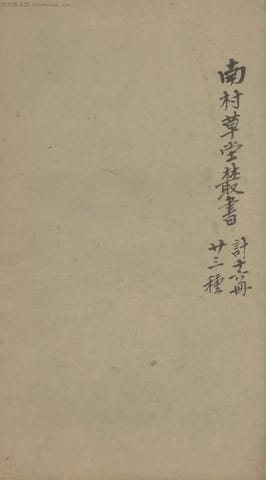 南村草堂叢書
計十六冊
廿三種